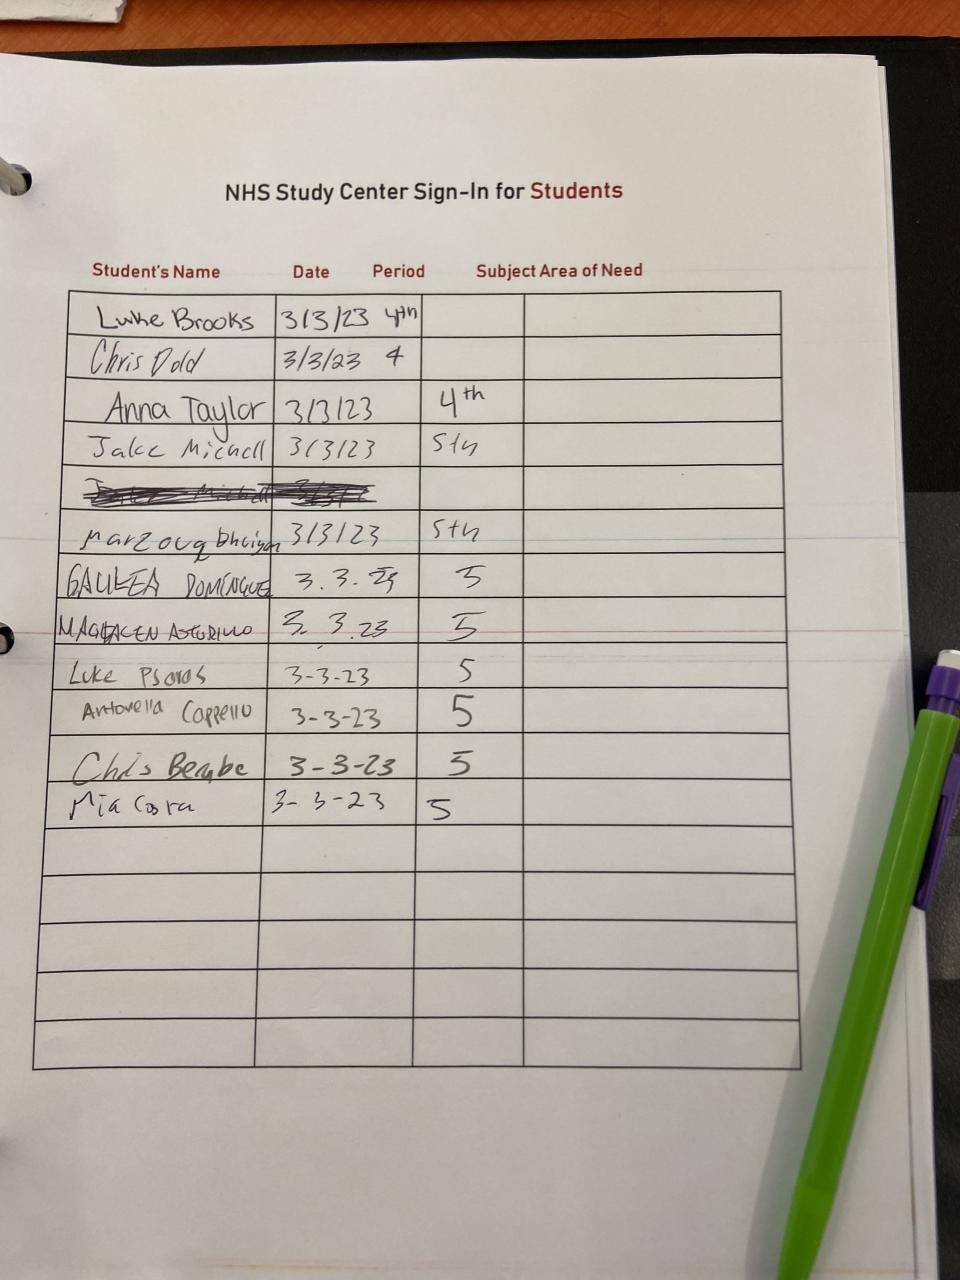 NHS Study Center Sign-In for Students
Student's Name Date Period Subject Area of Need
Luke Brooks 3/3/23 4th
Chris Dold 3/3/23 4
Anna Taylor 3/3/23 4th
Jake Michell 3/3/23 5th
Marzouq Bhuiyan 3/3/23 5th
DOMINGUEZ 3.3.23 5
3.3.23 5
Luke Psoros 3-3-23 5
Antonella Cappello 3-3-23 5
Chris 3-3-23 5
Mia 3-3-23 5